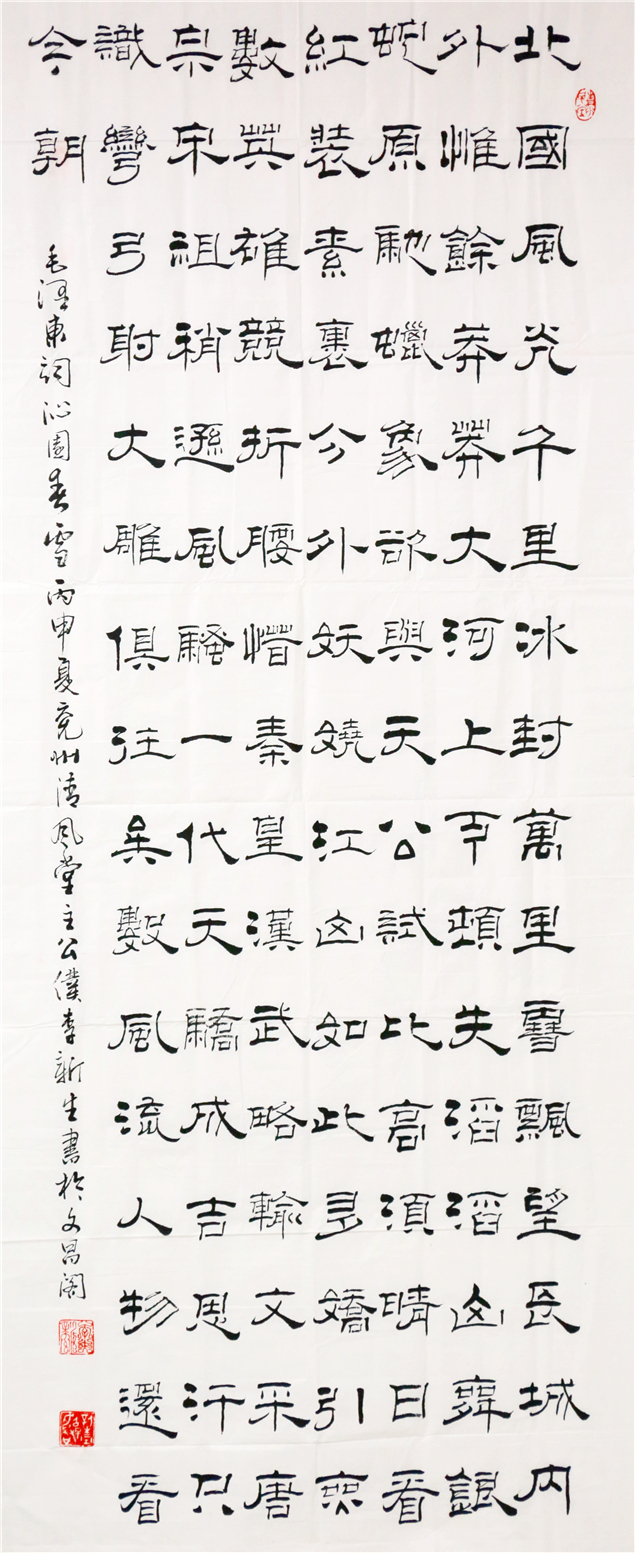 北國風光千里冰封萬里雪飄望長城內
外惟餘莽莽大河上下頓失滔滔山舞銀
蛇原馳蠟象欲與天公試比高須晴日看
紅裝素裹分外妖嬈江山如此多嬌引無
數英雄競折腰惜秦皇漢武略輸文采唐
宗宋祖稍遜風騷一代天驕成吉思汗只
識彎弓射大雕俱往矣數風流人物還看
今朝
毛澤東詞沁園春雪丙申夏兗州清風堂主公僕李新生書於文昌閣